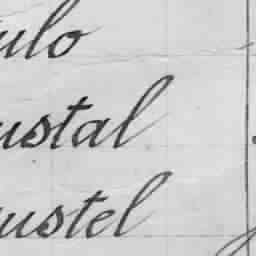 ulo
ustal
ustel